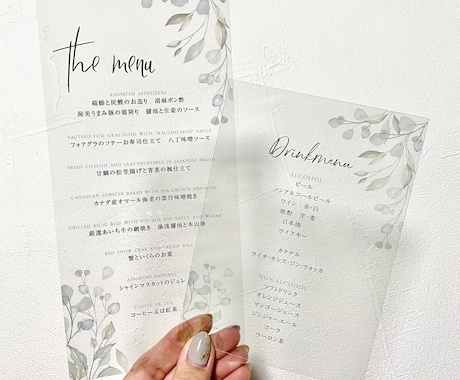 the menu
ASSORTED APPETIZERS
縞鯵と灰鮑のお造り 胡麻ポン酢
渥美うまみ豚の霜降り 醤油と生姜のソース
SAUTEED FOIE GRAS SUSHI WITH "HACCHO-MISO" SAUCE
フォアグラのソテーお寿司仕立て 八丁味噌ソース
FRIED TILEFISH AND LEAF VEGETABLE IN JAPANESE BROTH
甘鯛の松笠揚げと青菜の椀仕立て
CANADIAN LOBSTER BAKED WITH SEA-URCHIN AND MISO
カナダ産オマール海老の雲丹味噌焼き
GRILLED AICHI BEEF WITH VINTAGE SOY SAUCE AND WASABI
厳選あいち牛の鍋焼き 湯浅醤油と本山葵
RED SNOW CRAB AND "IKURA" RICE
蟹といくらのお重
ASSORTED DESSERTS
シャインマスカットのジュレ
COFFEE OR TEA
コーヒー又は紅茶
Drinkmenu
ALCOHOL
ビール
ノンアルコールビール
ワイン 赤・白
焼酎 芋・麦
日本酒
ウイスキー
カクテル
ライチ・カシス・ジン・ウォッカ
NON ALCOHOL
ソフトドリンク
オレンジジュース
マンゴージュース
ジンジャーエール
コーラ
ウーロン茶